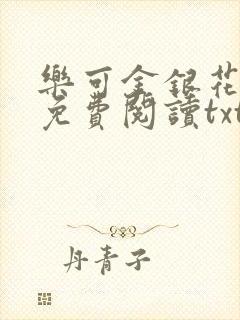 樂可金銀花
免費閱讀txt
丹青子